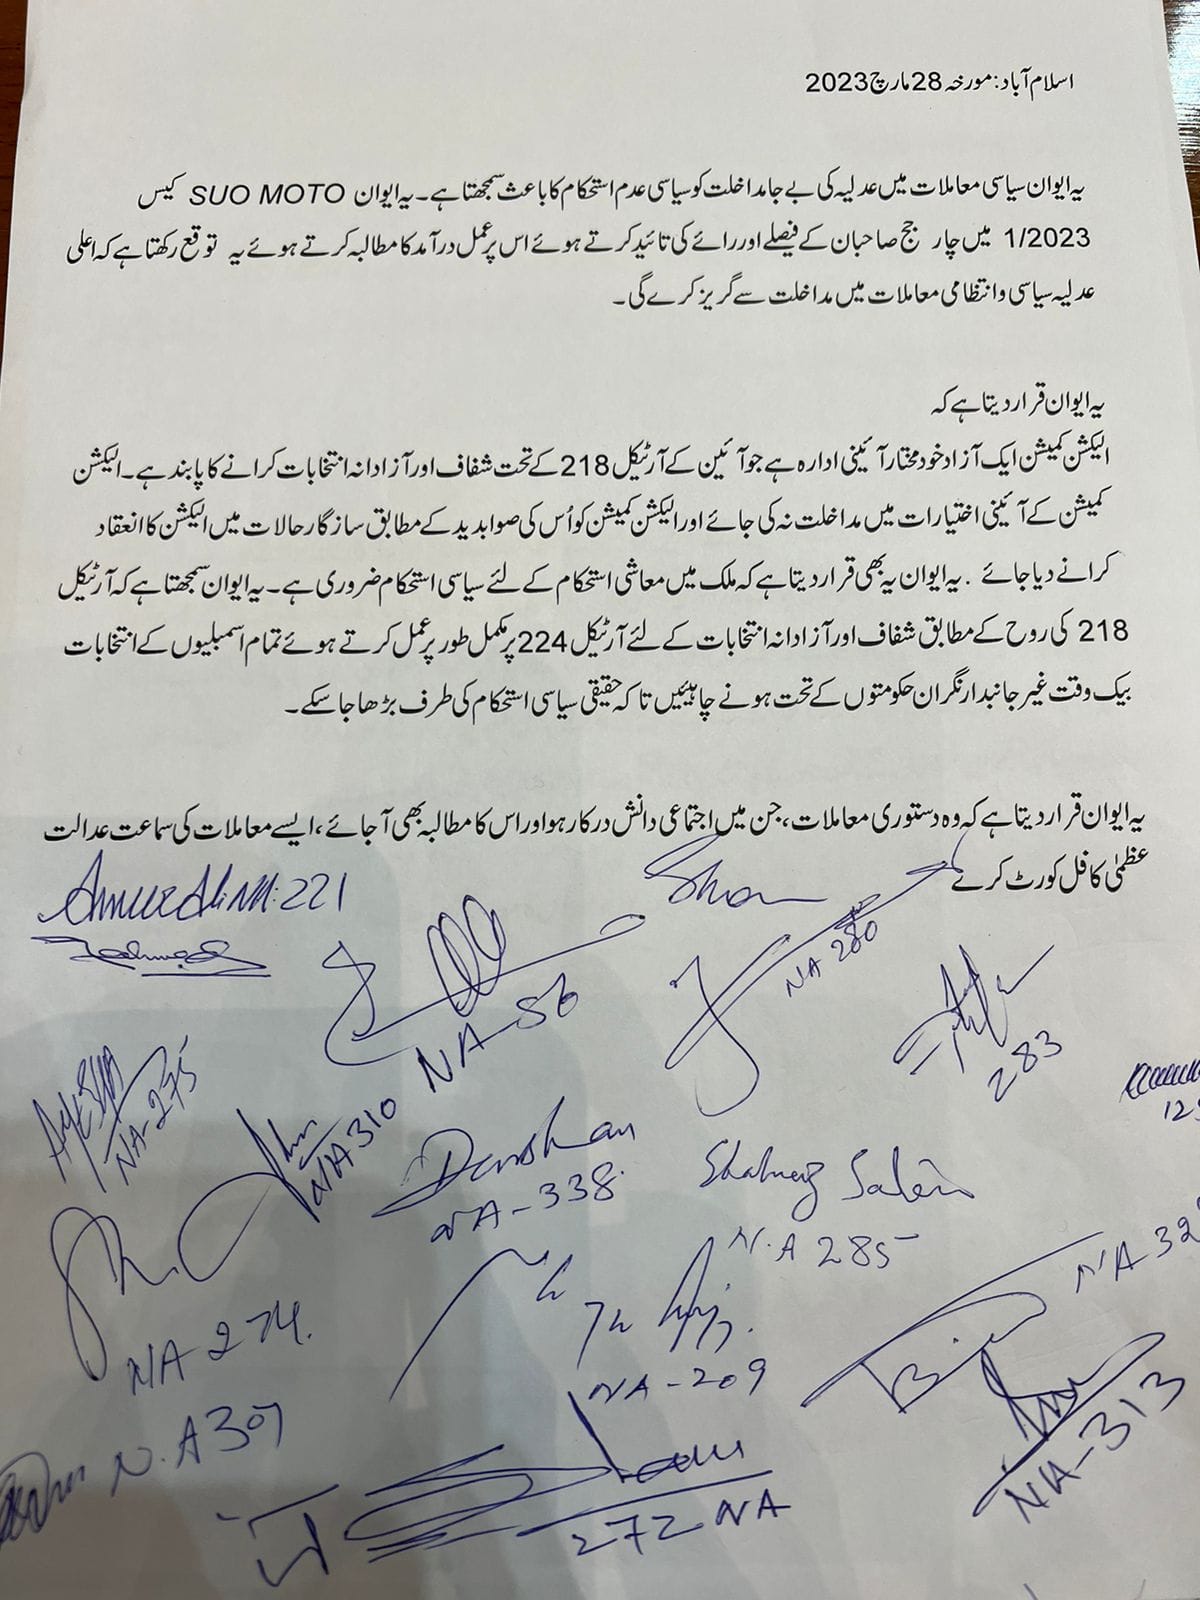 اسلام آباد: مورخہ 28 مارچ 2023
یہ ایوان سیاسی معاملات میں عدلیہ کی بے جا مداخلت کو سیاسی عدم استحکام کا باعث سمجھتا ہے۔ یہ ایوان SUO MOTO کیس
1/2023 میں چار جج صاحبان کے فیصلے اور رائے کی تائید کرتے ہوئے اس پر عمل درآمد کا مطالبہ کرتے ہوئے یہ توقع رکھتا ہے کہ اعلی
عدلیہ سیاسی و انتظامی معاملات میں مداخلت سے گریز کرے گی۔
یہ ایوان قرار دیتا ہے کہ
الیکشن کمیشن ایک آزاد خود مختار آئینی ادارہ ہے جو آئین کے آرٹیکل 218 کے تحت شفاف اور آزادانہ انتخابات کرانے کا پابند ہے۔ الیکشن
کمیشن کے آئینی اختیارات میں مداخلت نہ کی جائے اور الیکشن کمیشن کو اُس کی صوابدید کے مطابق سازگار حالات میں الیکشن کا انعقاد
کرانے دیا جائے . یہ ایوان یہ بھی قرار دیتا ہے کہ ملک میں معاشی استحکام کے لئے سیاسی استحکام ضروری ہے۔ یہ ایوان سمجھتا ہے کہ آرٹیکل
218 کی روح کے مطابق شفاف اور آزادانہ انتخابات کے لئے آرٹیکل 224 پر مکمل طور پر عمل کرتے ہوئے تمام اسمبلیوں کے انتخابات
بیک وقت غیر جانبدار نگران حکومتوں کے تحت ہونے چاہیئیں تاکہ حقیقی سیاسی استحکام کی طرف بڑھا جا سکے۔
یہ ایوان قرار دیتا ہے کہ وہ دستوری معاملات، جن میں اجتماعی دانش درکار ہو اور اس کا مطالبہ بھی آ جائے، ایسے معاملات کی سماعت عدالت
عظمٰی کا فل کورٹ کرے
NA: 221
NA 280
NA-86
283
NA-275
NA 310
Darshan
NA-338
Shahnaz Saleem
N.A 285
NA 274.
NA-209
N.A 307
NA-313
272 NA